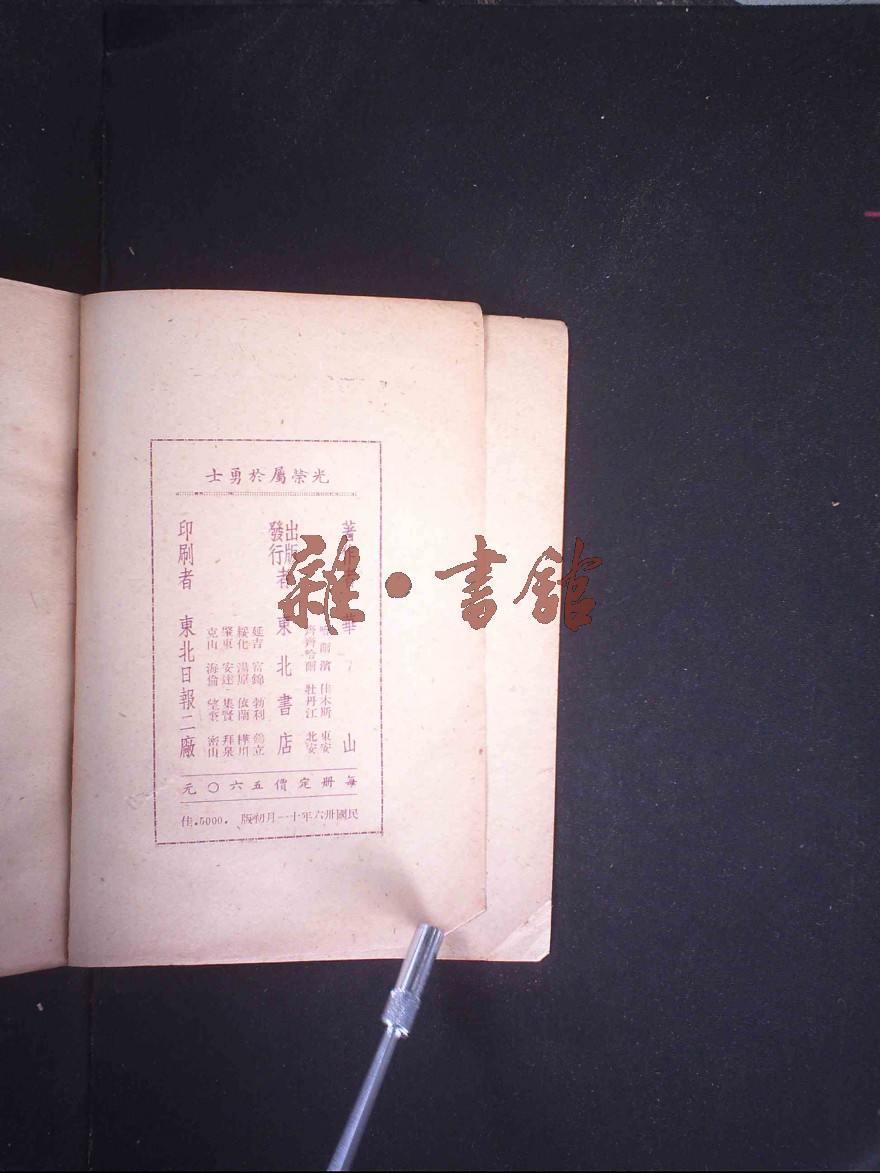 光榮屬於勇士
著作者 華山
哈爾濱 佳木斯 東安
齊齊哈爾 牡丹江 北安
出版
發行者 東北書店
延吉 富錦 勃利 鶴立
綏化 湯原 依蘭 樺川
肇東 安達 集賢 拜泉
克山 海倫 望奎 密山
印刷者 東北日報二廠
每册定價五六〇元
民國卅六年十一月初版 .5000.佳
雜·書館